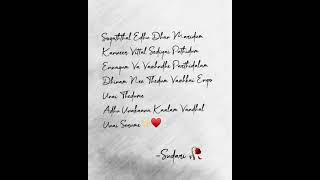 Sogaththal Edhu Dhan Maridum
Kanneer Vittal Sediyai Pathidum
Ennayum Va Vazhndhe Parthidalam
Dhinam Nee Thedum Vazhkai Engo
Unai Thedume
Adhu Unakana Kaalam Vandhal
Unai Serume ✨❤️
-Sudari 🥀